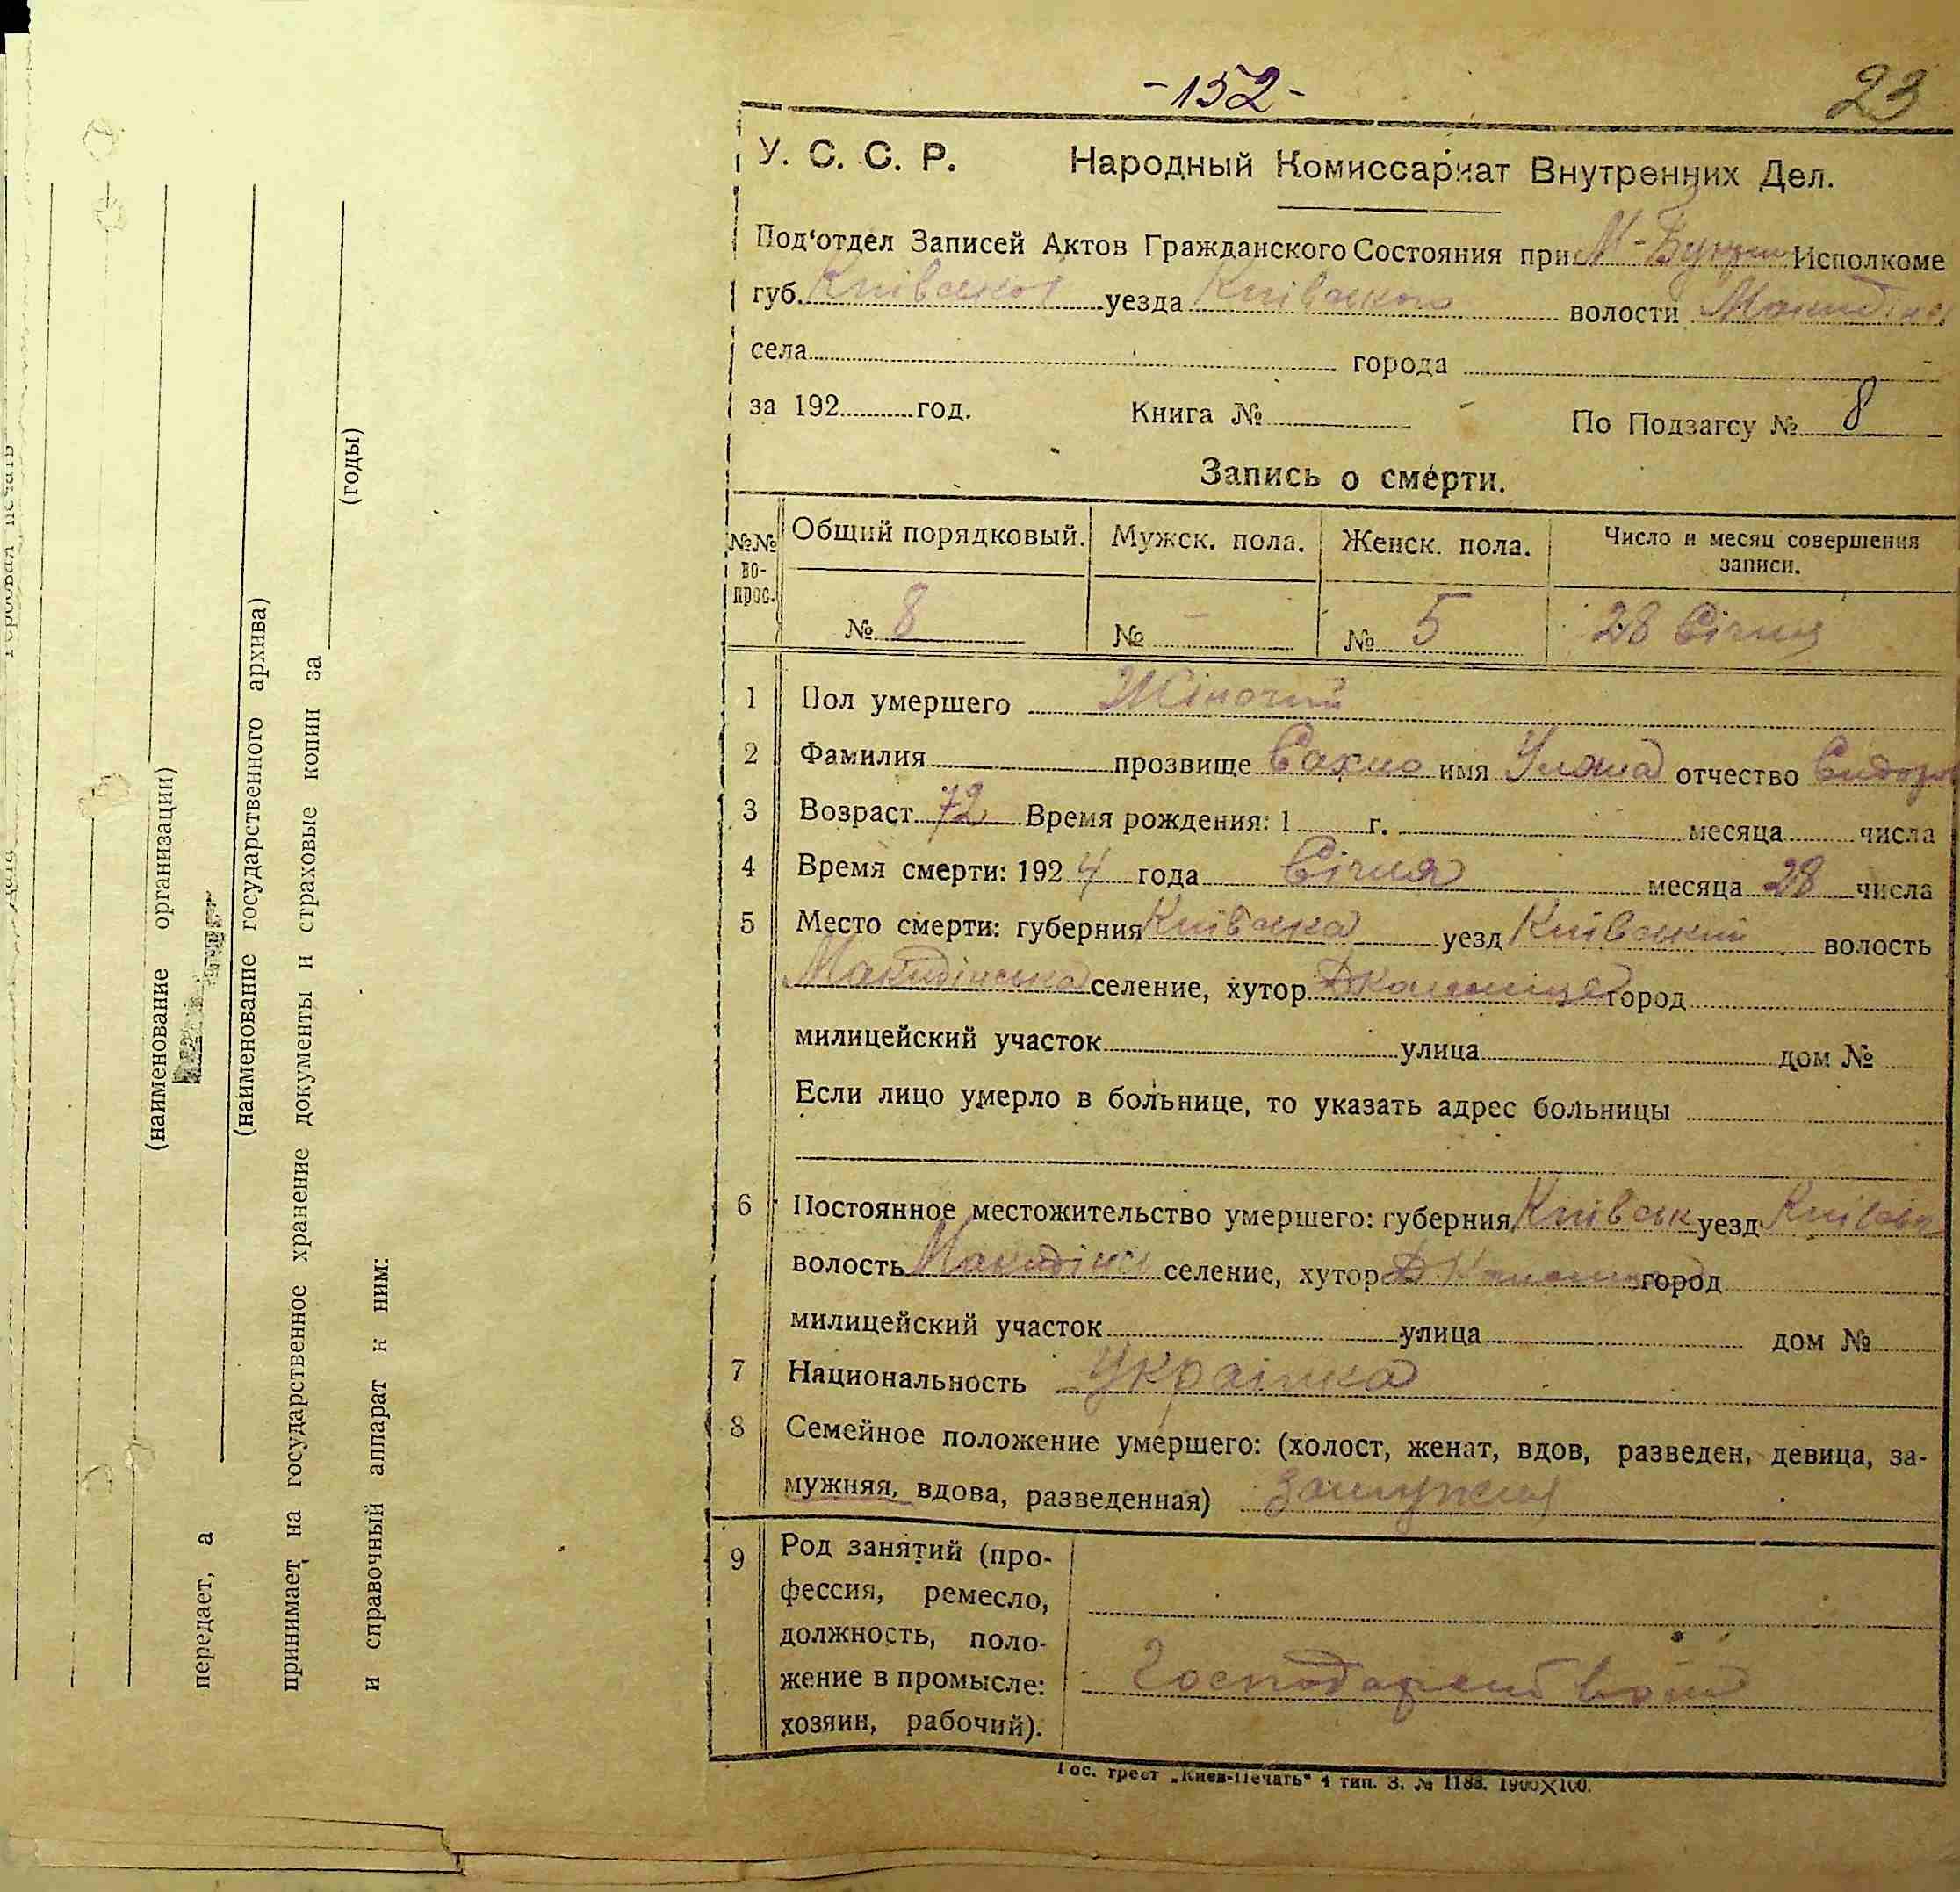 -152-
23
У. С. С. Р. Народный Комиссариат Внутренних Дел.
Под‘отдел Записей Актов Гражданского Состояния при М-Букрин Исполкоме
губ. Київської уезда Київського волости
села города
за 192 год. Книга № По Подзагсу № 8
Запись о смерти.
№№ во- прос. Общий порядковый. Мужск. пола. Женск. пола. Число и месяц совершения записи.
№ 8 № - № 5 28 Січня
1 Пол умершего Жіночий
2 Фамилия прозвище Сахно имя Уляна отчество Сидоров
3 Возраст 72 Время рождения: 1 г. месяца числа
4 Время смерти: 1924 года Січня месяца 28 числа
5 Место смерти: губерния Київська уезд Київський волость
селение, хутор город
милицейский участок улица дом №
Если лицо умерло в больнице, то указать адрес больницы
6 Постоянное местожительство умершего: губерния Київськ уезд Київськ
волость селение, хутор город
милицейский участок улица дом №
7 Национальность Українка
8 Семейное положение умершего: (холост, женат, вдов, разведен, девица, за-
мужняя, вдова, разведенная) замужня
9 Род занятий (про-
фессия, ремесло,
должность, поло-
жение в промысле:
хозяин, рабочий).
Гос. трест „Киев-Печать“ 4 тип. З. № 1188. 1900×100.
(наименование организации)
передает, а
(наименование государственного архива)
принимает на государственное хранение документы и страховые копии за
(годы)
и справочный аппарат к ним: